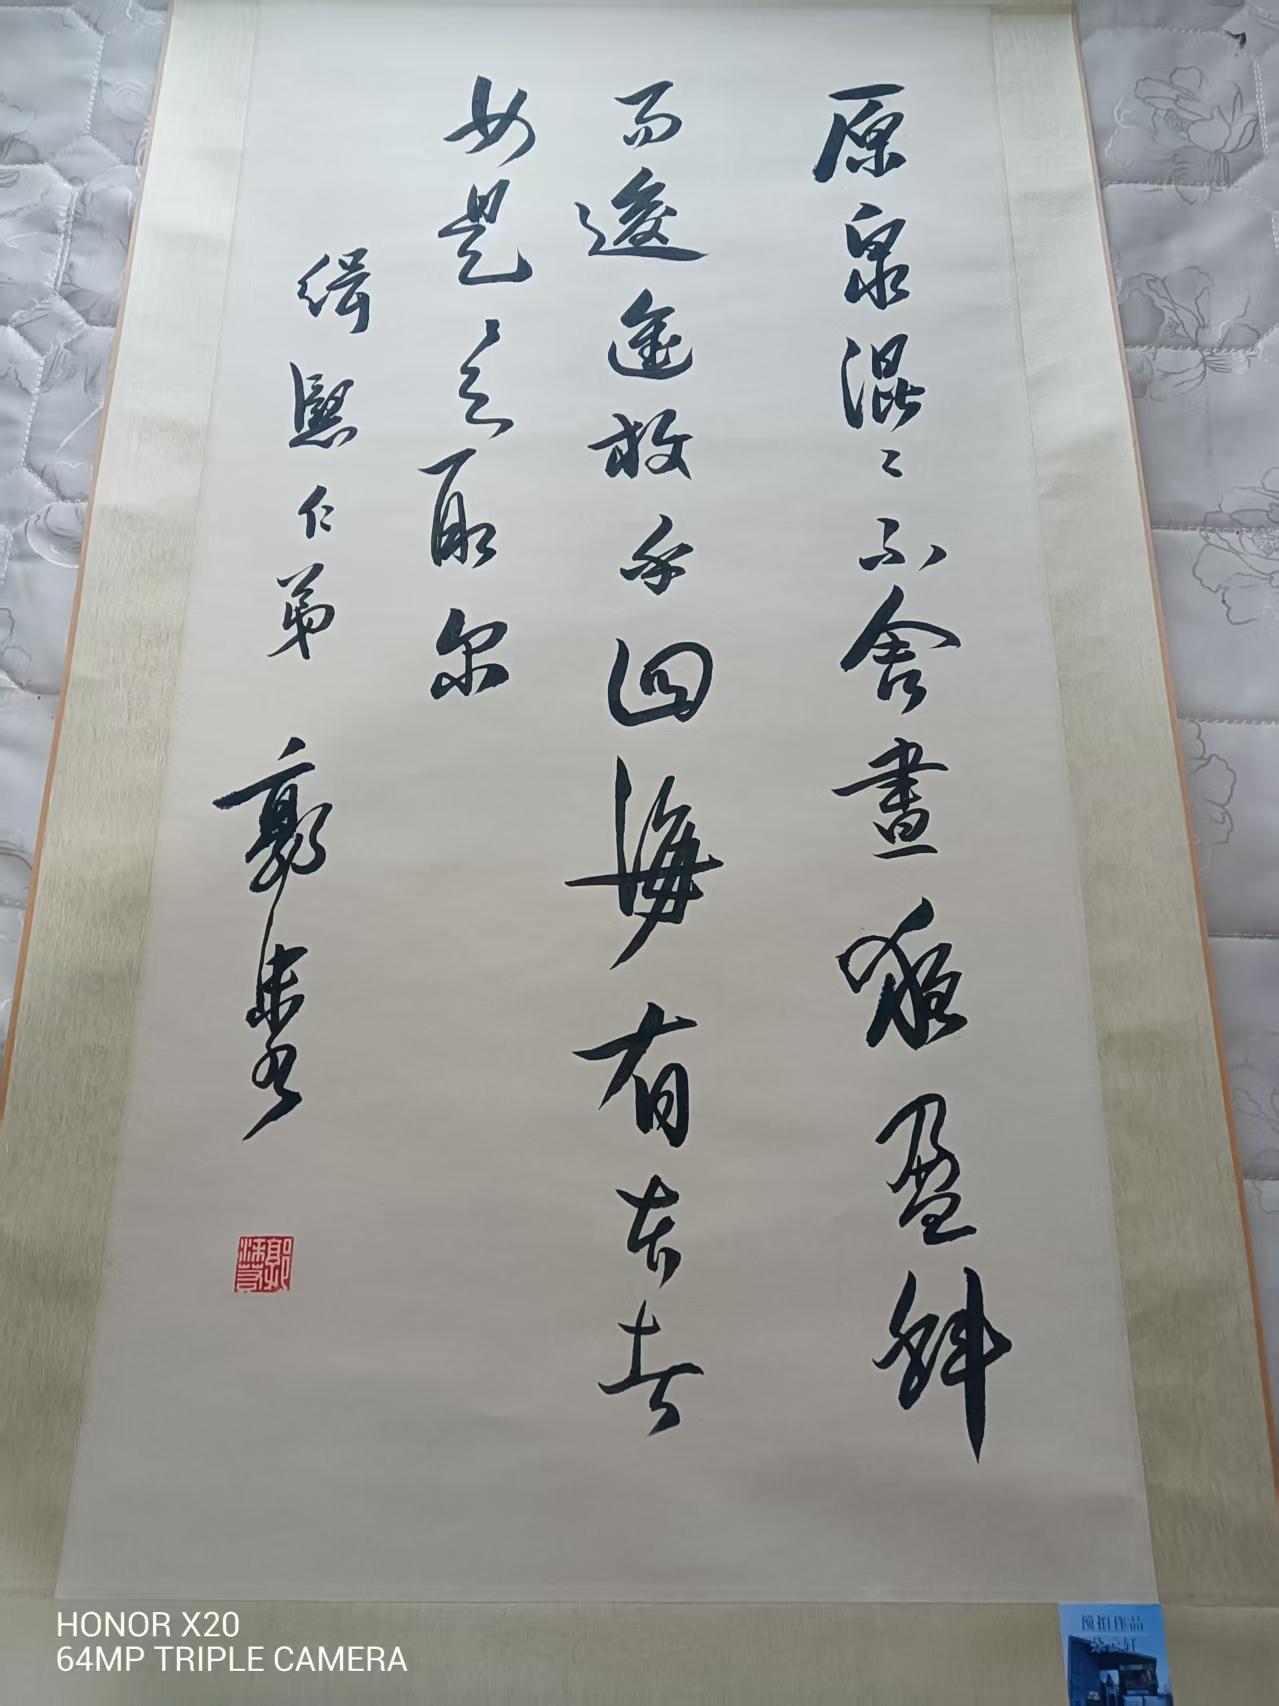 原泉混〻不舍晝夜盈科
而後進放乎四海有本者
如是〻之取尔
緝熙仁弟 郭沫若
郭沫若
预拍作品
轩
HONOR X20
64MP TRIPLE CAMERA